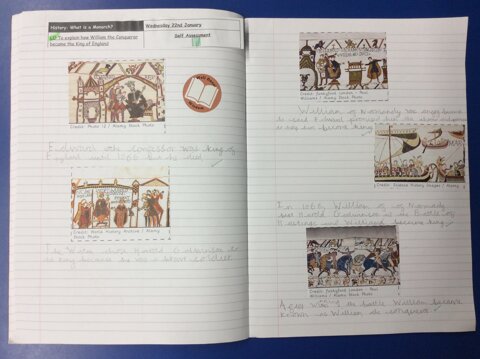 History: What is a Monarch?
Wednesday 22nd January
L.I. To explain how William the Conqueror
became the King of England
Self Assessment
Credit: Photo 12 / Alamy Stock Photo
Edward the Confessor was king of
England until 1066 but he died
Credit: World History Archive / Alamy
Stock Photo
The Witan chose Harold Godwinson
king because he was a brave soldier
Credit: funkyfood London - Paul
Williams / Alamy Stock Photo
William of Normandy was angry
he said Edward promised him
king
Credit: Science History Images / Alamy
In 1066, William of Normandy
beat Harold Godwinson at the Battle of
Hastings and William became king
Credit: funkyfood London - Paul
Williams / Alamy Stock Photo
After the battle William became
known as William the conqueror